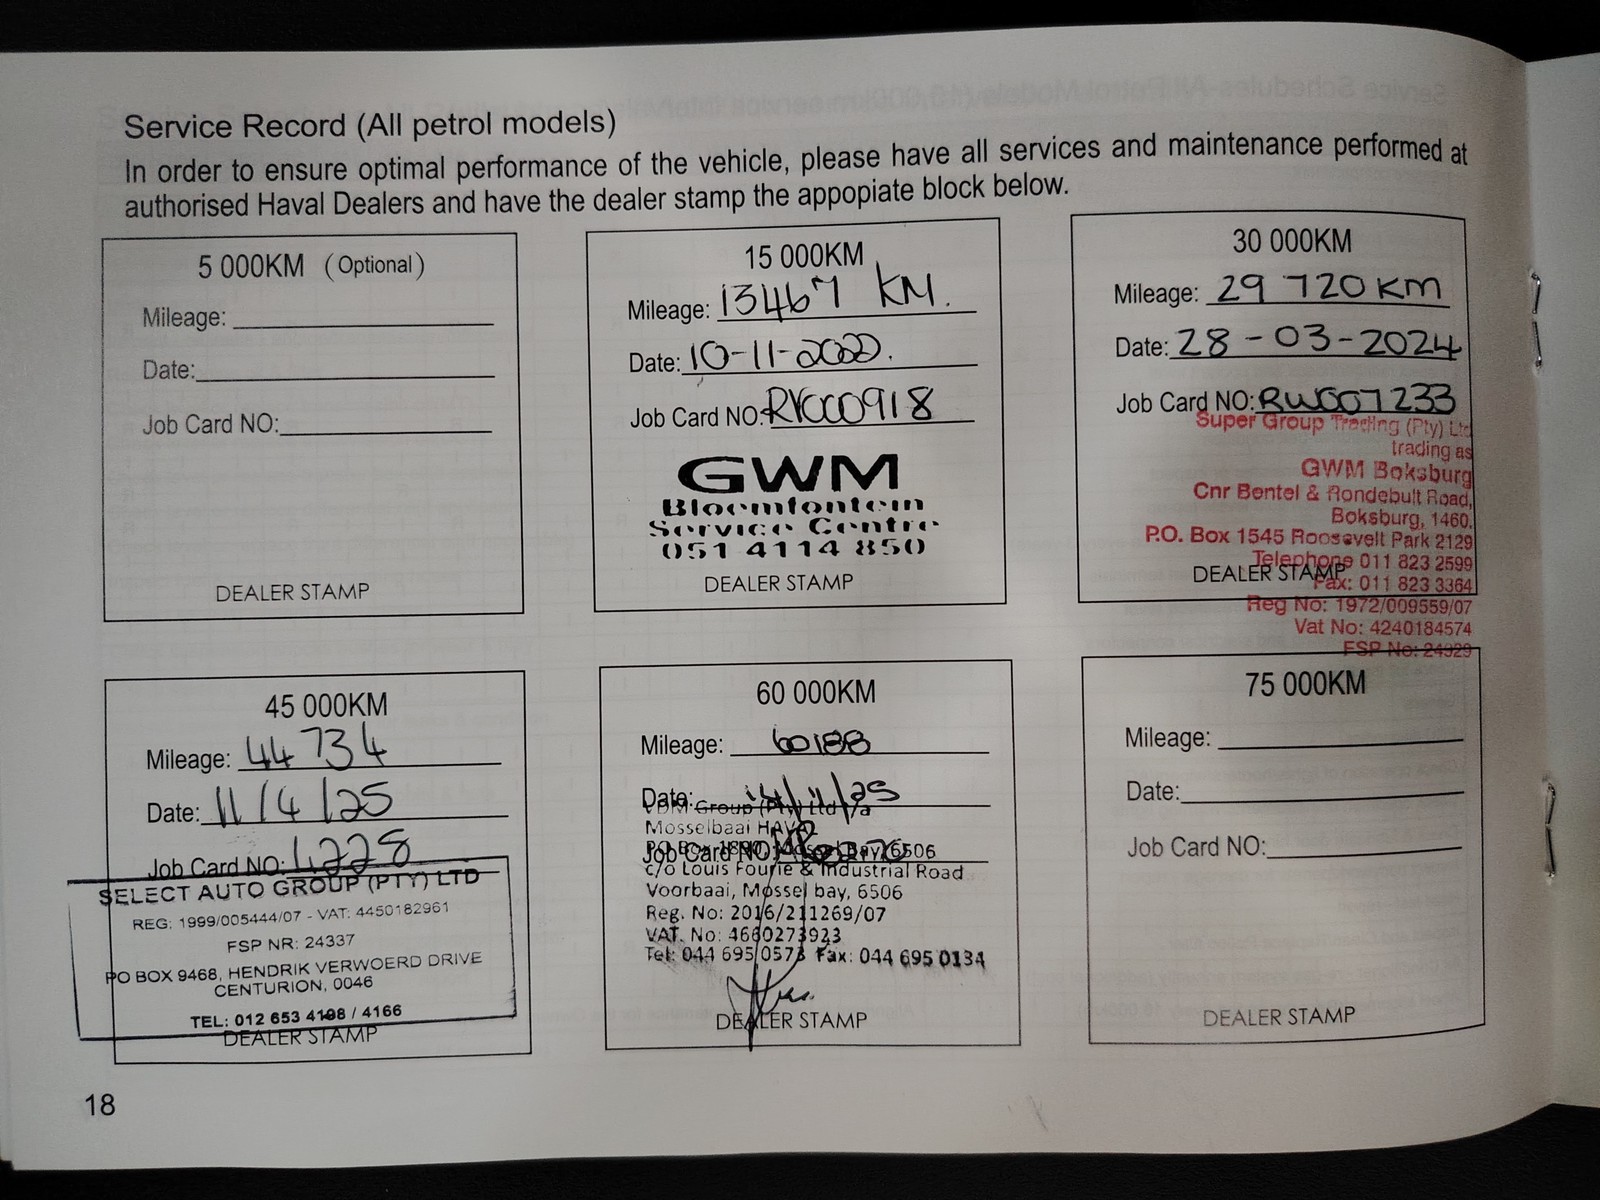 Service Record (All petrol models)
In order to ensure optimal performance of the vehicle, please have all services and maintenance performed at
authorised Haval Dealers and have the dealer stamp the appopiate block below.
5 000KM (Optional)
Mileage:
Date:
Job Card NO:
DEALER STAMP
15 000KM
Mileage: 13467 KM.
Date: 10-11-2022.
Job Card NO:
GWM
Bloemfontein
Service Centre
051 4114 850
DEALER STAMP
30 000KM
Mileage: 29 720 KM
Date: 28-03-2024
Job Card NO: RW007233
Super Group Trading (Pty) Ltd
trading as
GWM Boksburg
Cnr Bentel & Rondebult Road,
Boksburg, 1460.
P.O. Box 1545 Roosevelt Park 2129
Telephone 011 823 2599
DEALER STAMP
Fax: 011 823 3364
Reg No: 1972/009559/07
Vat No: 4240184574
FSP No: 24329
45 000KM
Mileage: 44 734
Date: 11/4/25
Job Card NO: 4228
SELECT AUTO GROUP (PTY) LTD
REG: 1999/005444/07 - VAT: 4450182961
FSP NR: 24337
PO BOX 9468, HENDRIK VERWOERD DRIVE
CENTURION, 0046
TEL: 012 653 4198 / 4166
DEALER STAMP
60 000KM
Mileage: 60188
Date: 14/11/25
Group (Pty) Ltd t/a
Mosselbaai HAVAL
Job Card NO:
PO Box 1890, Mossel Bay, 6506
c/o Louis Fourie & Industrial Road
Voorbaai, Mossel bay, 6506
Reg. No: 2016/211269/07
VAT. No: 4660273923
Tel: 044 695 0573 Fax: 044 695 0134
DEALER STAMP
75 000KM
Mileage:
Date:
Job Card NO:
DEALER STAMP
18